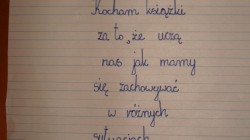 Kocham książki
za to, że uczą
nas jak mamy
się zachowywać
w różnych
sytuacjach